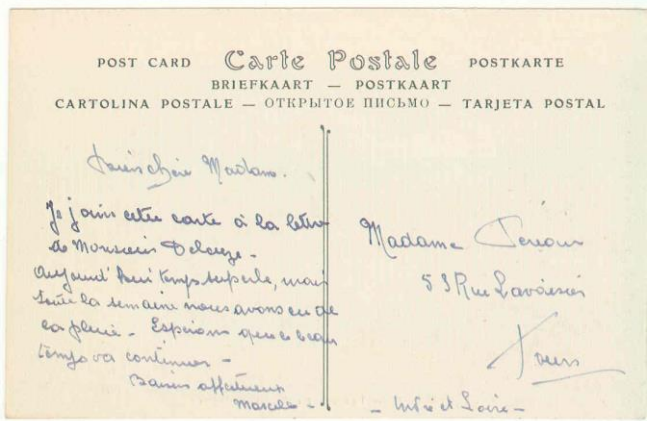 POST CARD Carte Postale POSTKARTE
BRIEFKAART — POSTKAART
CARTOLINA POSTALE — ОТКРЫТОЕ ПИСЬМО — TARJETA POSTAL
chère Madame.
Je joins cette carte à la lettre
de Monsieur Delouze -
aujourd'hui temps superbe, mais
toute la semaine nous avons eu de
la pluie - Espérons que ce beau
temps va continuer -
Baisers affectueux
Marcelle -
Madame
53 Rue Lavoisier
Tours
- Indre et Loire -